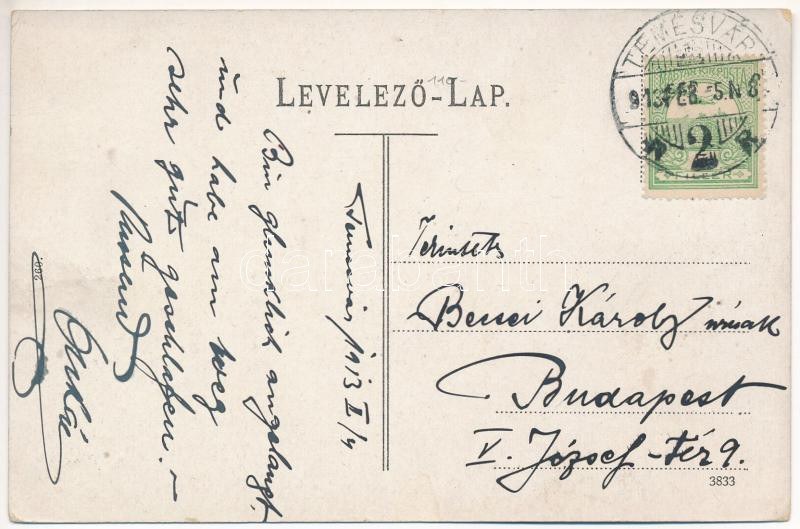 LEVELEZŐ-LAP.
110
TEMESVÁR
913 FEB. 5. N 8
MAGYAR KIR. POSTA
2
FILLÉR
Temesvár, 1913 II/4
Bin glücklich angelangt.
und habe am weg
sehr gut geschlafen. –
Tekintetes
Becsei Károly úrnak
Budapest
V. József-tér 9.
3833
260.
darabanth